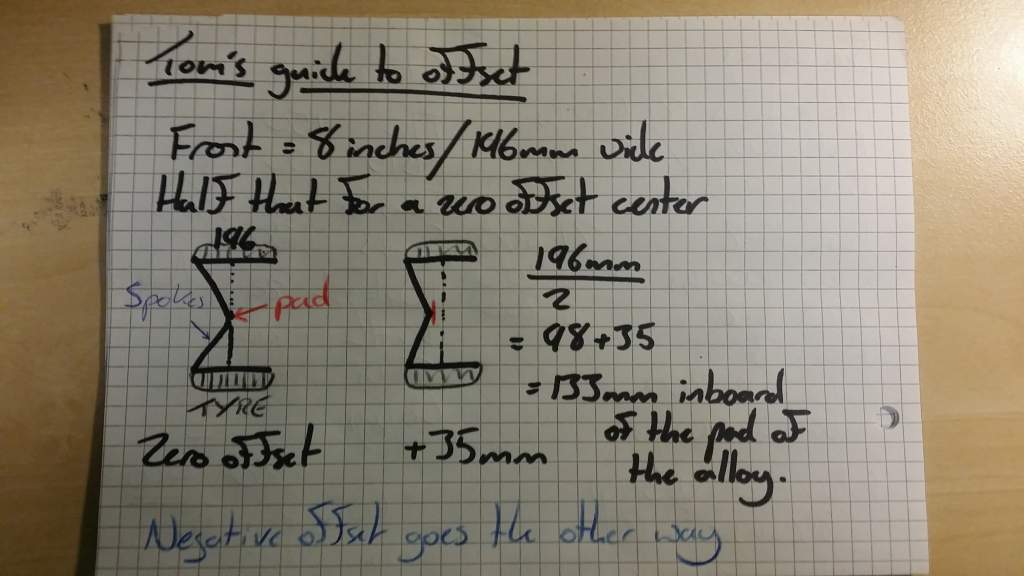 Tom's guide to offset
Front = 8 inches/196mm wide
Half that for a zero offset center
196
Spokes
pad
TYRE
Zero offset
+35mm
196mm
2
= 98+35
= 133mm inboard
of the pad of
the alloy.
Negative offset goes the other way